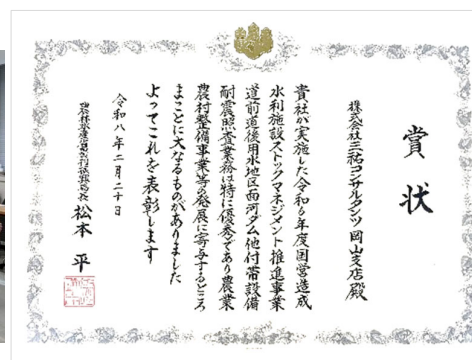 賞状
株式会社三祐コンサルタンツ岡山支店殿
貴社が実施した令和6年度国営造成
水利施設ストックマネジメント推進事業
道前道後用水地区面河ダム他付帯設備
耐震照査業務は特に優秀であり農業
農村整備事業等の発展に寄与するところ
まことに大なるものがありました
よってこれを表彰します
令和八年二月二十日
松本 平